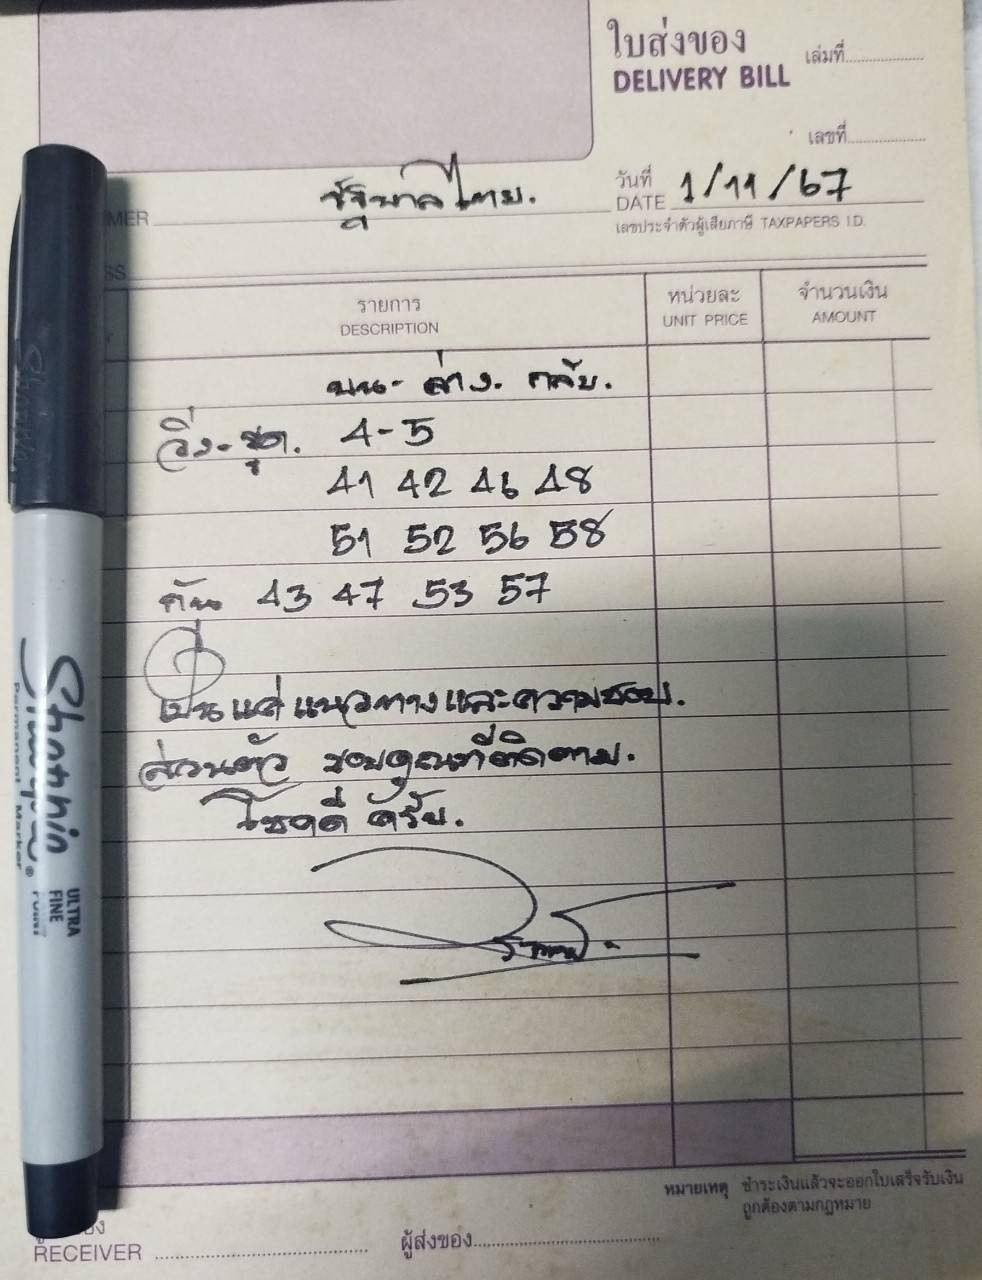 ใบส่งของ
DELIVERY BILL
เล่มที่
เลขที่
วันที่
DATE 1/11/67
MER รัฐบาลไทย.
เลขประจำตัวผู้เสียภาษี TAXPAPERS I.D.
SS
รายการ
DESCRIPTION
หน่วยละ
UNIT PRICE
จำนวนเงิน
AMOUNT
บน - ล่าง. กลับ.
วิ่ง - ชุด. 4-5
41 42 46 48
51 52 56 58
กัน 43 47 53 57
เป็นแค่แนวทางและความชอบ.
ส่วนตัว ขอบคุณที่ติดตาม.
โชคดี ครับ.
Sharpie®
Permanent Marker
ULTRA
FINE
POINT
หมายเหตุ ชำระเงินแล้วจะออกใบเสร็จรับเงิน
ถูกต้องตามกฎหมาย
RECEIVER
ผู้ส่งของ